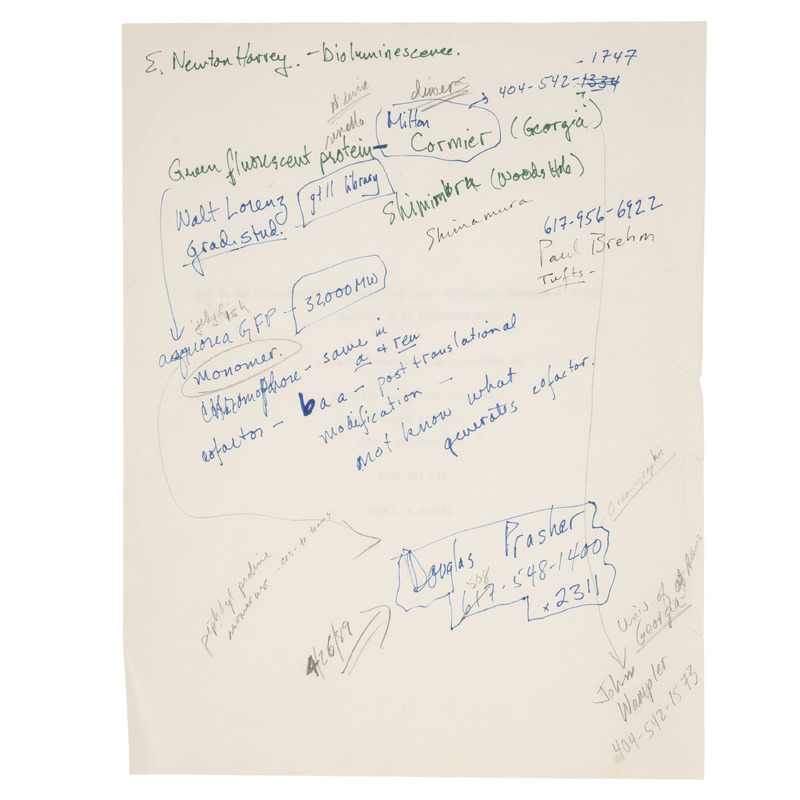 E. Newton Harvey. - Bioluminescence.
- 1747
404-542-1334
dimers
renella
Milton
Green fluorescent protein - Cormier (Georgia)
?
Walt Lorenz
grad. stud.
gt11 library
Shimimbra (Woods Hole)
Shimamura
617-956-6922
Paul Brehm
Tufts -
jellyfish
aequorea GFP - 32,000 MW
monomer.
chromophore - same in
a + ren
cofactor - 6 a a - post translational
modification -
not know what
generates cofactor.
Oceanographic
Douglas Prasher
508
617-548-1400
x 2311
4/26/89
cis - to trans
Univ of
Georgia
John
Wampler
404-542-1573